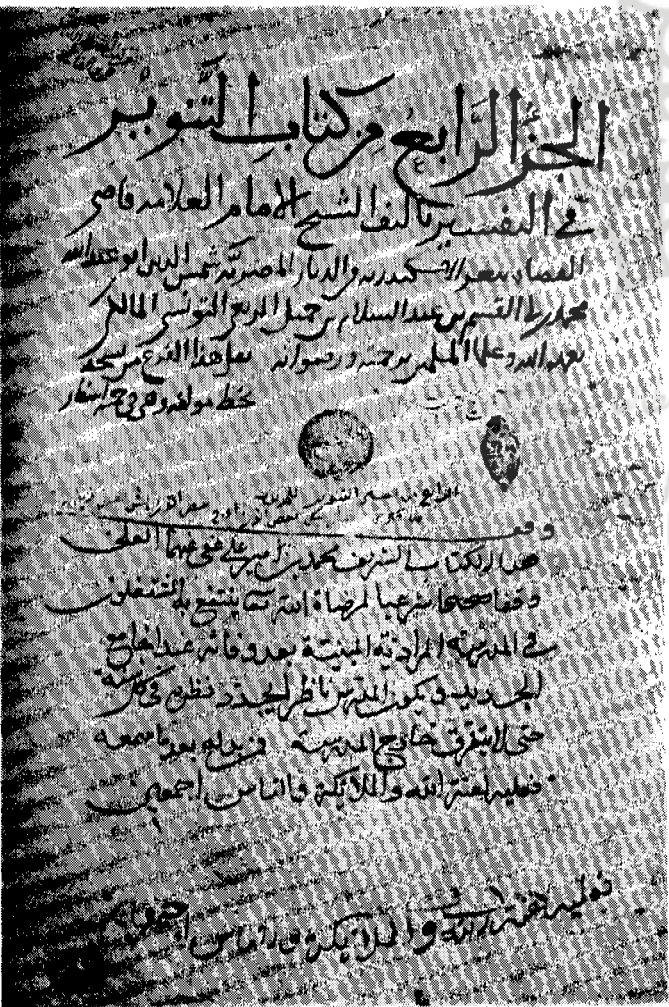 الجزء الرابع من كتاب التنوير
في التفسير تأليف الشيخ الامام العلامة قاضي
القضاة بثغر الاسكندرية والديار المصرية شمس الدين ابو عبد الله
محمد بن ابي القسم بن عبد السلام بن جميل الربعي التونسي المالكي
تغمده الله وعلما المسلمين برحمته ورضوانه نقل هذا الفرع من نسخة
بخط مولفه وهي في خمسة اسفار
وقف
هذا الكتاب الشريف محمد بن امير علي عفي عنهما العلي
وقفا صحيحا شرعيا لمرضاة الله تعا ينتفع به المشتغلون
في المدرسة المرادية المبنية بعد وفاته عند الجامع
الجديد ويكون المدرس ناظرا يجدد نظره في كل سنة
حتى لا يتفرق خارج المدرسة فمن بدله بعد ما سمعه
فعليه لعنة الله والملائكة والناس اجمعين
فعليه لعنة الله والملائكة والناس اجمعين